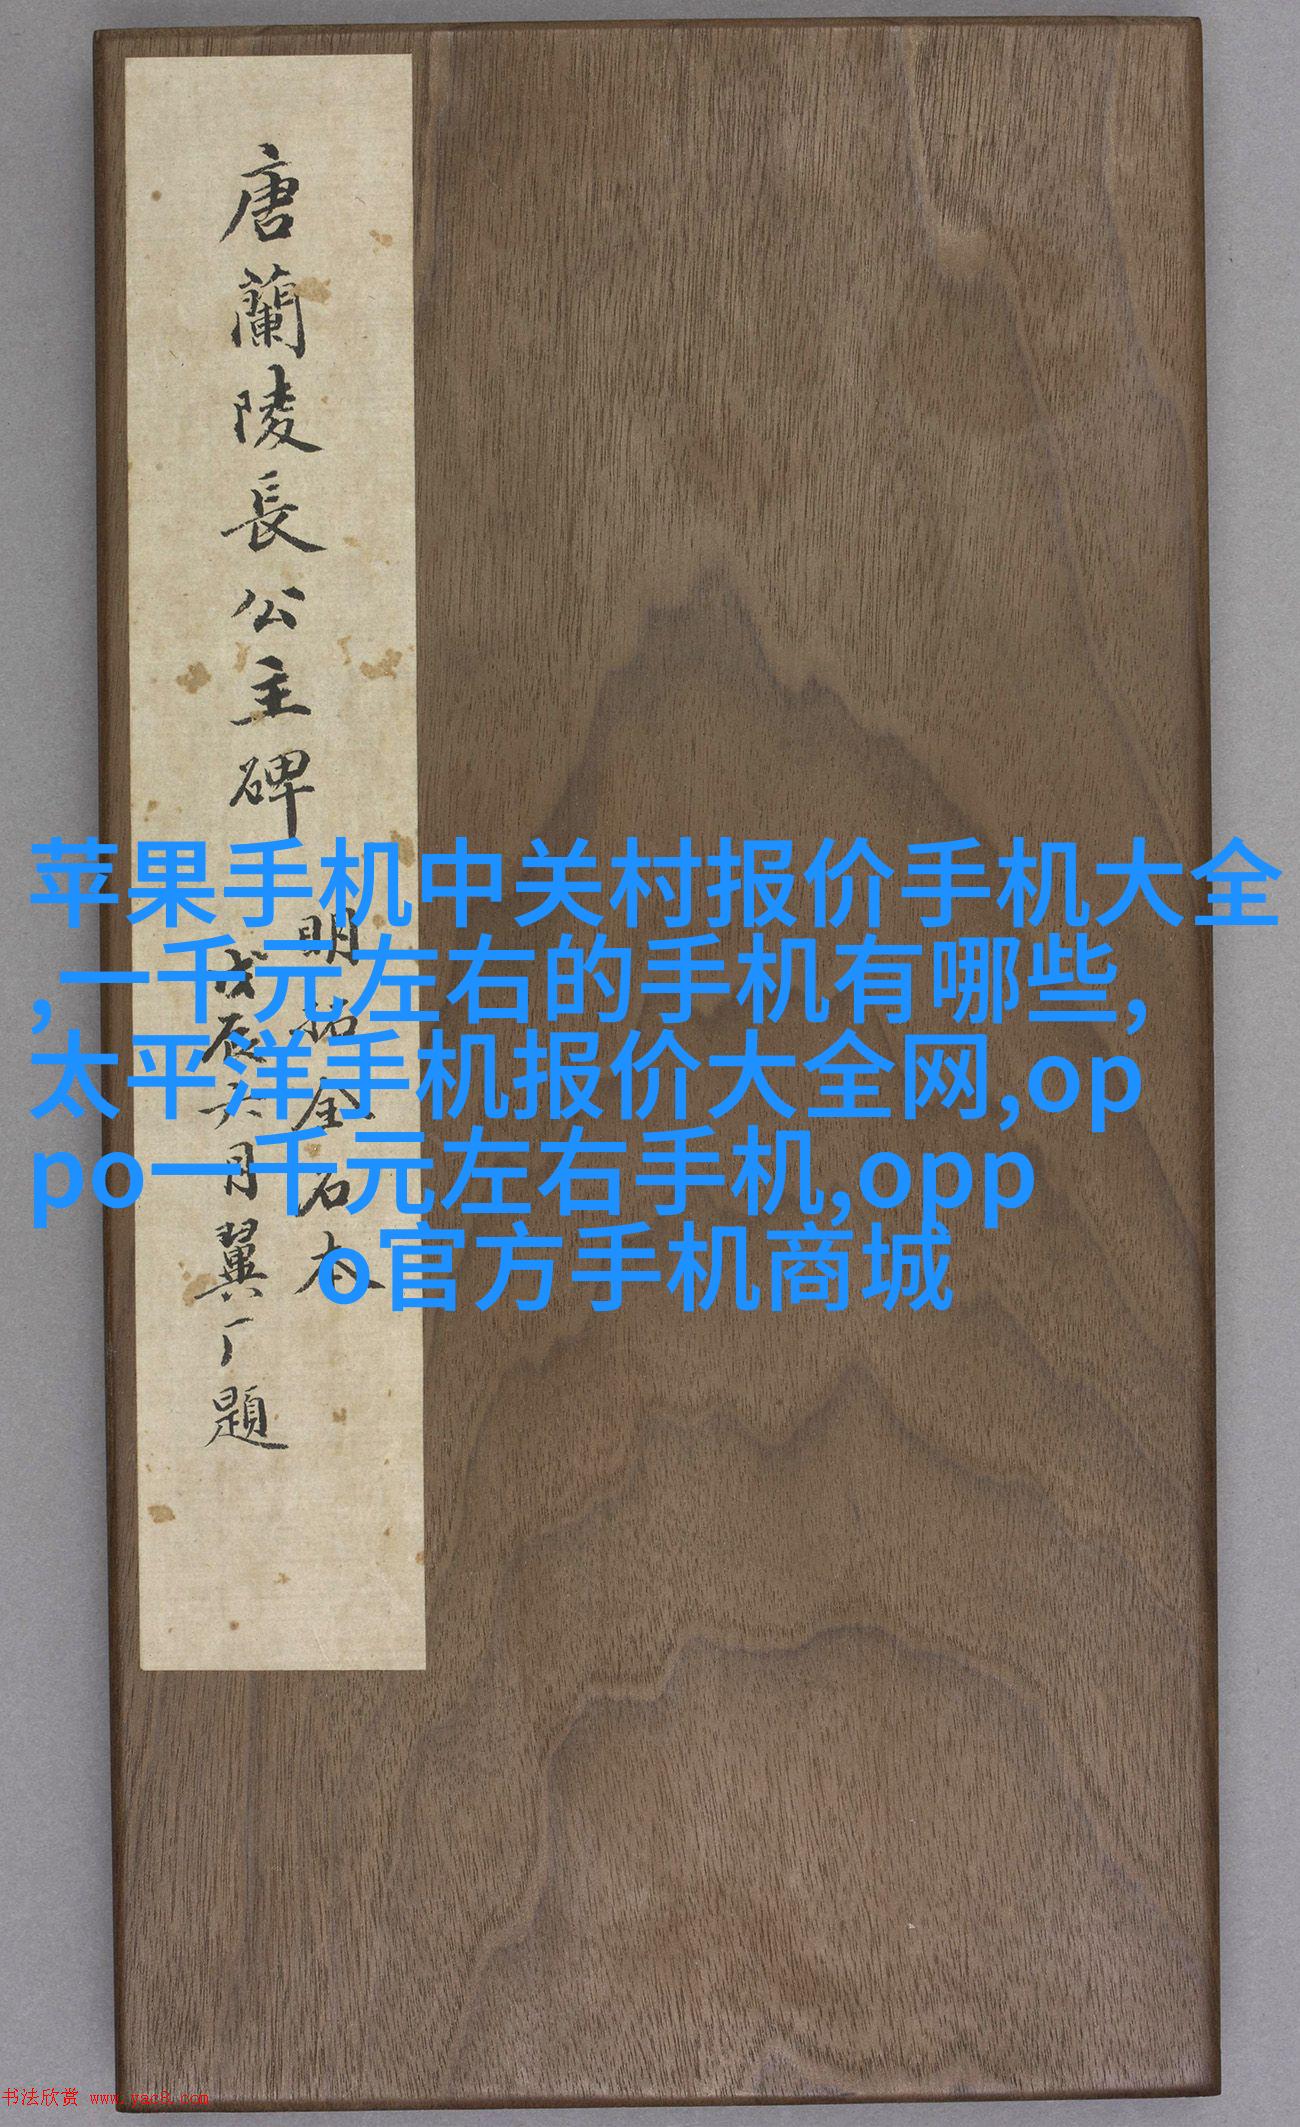 唐蘭陵長公主碑
明拓全石本
戊辰六月翼厂題
苹果手机中关村报价手机大全
,一千元左右的手机有哪些,
太平洋手机报价大全网,op
po一千元左右手机,opp
o官方手机商城
书法欣赏 www.yac8.com